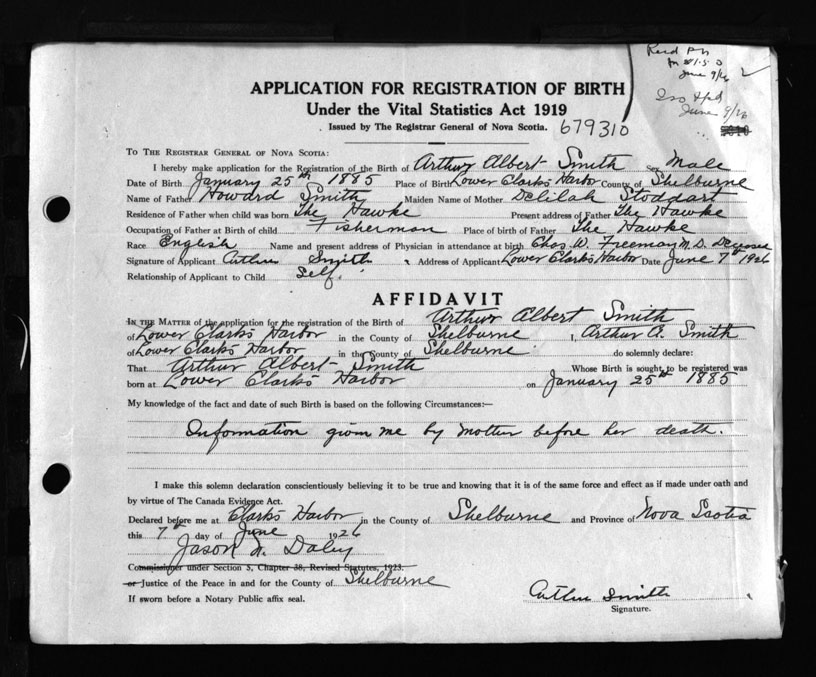 Recd PN
June 9/26
June 9/26
APPLICATION FOR REGISTRATION OF BIRTH
Under the Vital Statistics Act 1919
Issued by The Registrar General of Nova Scotia. 679310
TO THE REGISTRAR GENERAL OF NOVA SCOTIA:
I hereby make application for the Registration of the Birth of Arthur Albert Smith Sex Male
Date of Birth January 25th 1885 Place of Birth Lower Clarks Harbor County of Shelburne
Name of Father Howard Smith Maiden Name of Mother Delilah Stoddart
Residence of Father when child was born The Hawke Present address of Father The Hawke
Occupation of Father at Birth of child Fisherman Place of birth of Father The Hawke
Race English Name and present address of Physician in attendance at birth Chas. W. Freeman M. D.
Signature of Applicant Arthur Smith Address of Applicant Lower Clarks Harbor Date June 7th 1926
Relationship of Applicant to Child Self.
AFFIDAVIT
IN THE MATTER of the application for the registration of the Birth of Arthur Albert Smith
of Lower Clarks Harbor in the County of Shelburne I, Arthur A. Smith
of Lower Clarks Harbor in the County of Shelburne do solemnly declare:
That Arthur Albert Smith Whose Birth is sought to be registered was
born at Lower Clarks Harbor on January 25th 1885
My knowledge of the fact and date of such Birth is based on the following Circumstances:—
Information given me by Mother before her death.
I make this solemn declaration conscientiously believing it to be true and knowing that it is of the same force and effect as if made under oath and
by virtue of The Canada Evidence Act.
Declared before me at Clarks Harbor in the County of Shelburne and Province of Nova Scotia
this 7th day of June 1926
Jason N. Daley
Commissioner under Section 5, Chapter 38, Revised Statutes, 1923.
or Justice of the Peace in and for the County of Shelburne
If sworn before a Notary Public affix seal.
Arthur Smith
Signature.